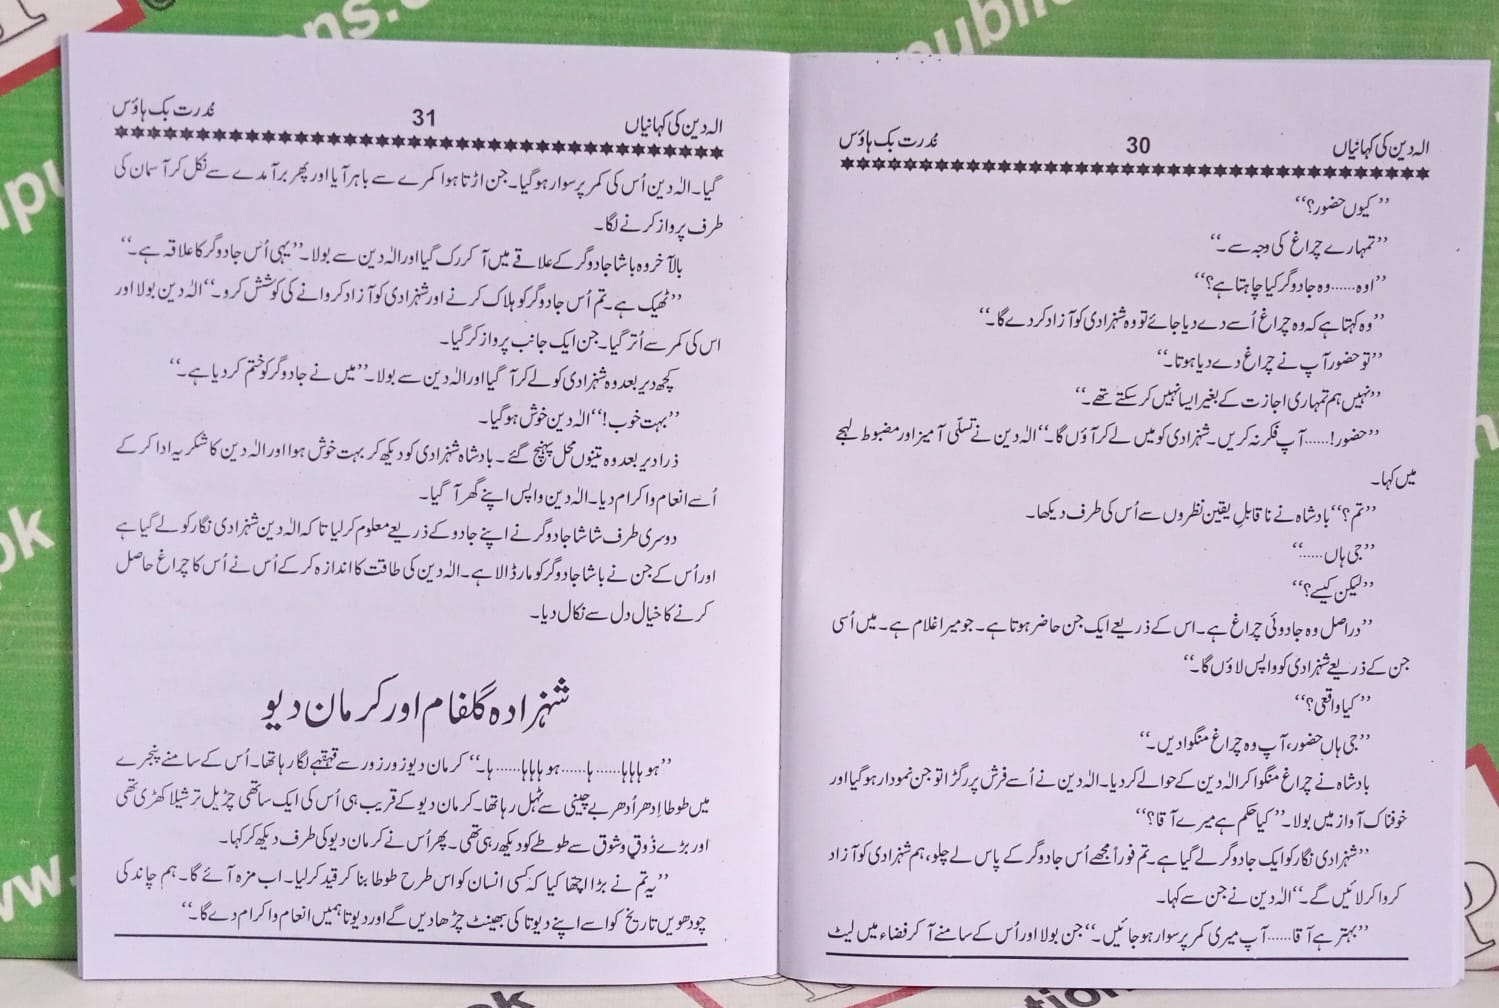 الہ دین کی کہانیاں 30 نُدرت بک ہاؤس
’’کیوں حضور؟‘‘
’’تمہارے چراغ کی وجہ سے۔‘‘
’’اوہ......وہ جادوگر کیا چاہتا ہے؟‘‘
’’وہ کہتا ہے کہ وہ چراغ اُسے دے دیا جائے تو وہ شہزادی کو آزاد کر دے گا۔‘‘
’’تو حضور آپ نے چراغ دے دیا ہوتا۔‘‘
’’نہیں ہم تمہاری اجازت کے بغیر ایسا نہیں کر سکتے تھے۔‘‘
’’حضور!......آپ فکر نہ کریں۔ شہزادی کو میں لے کر آؤں گا۔‘‘ الہ دین نے تسلّی آمیز اور مضبوط لہجے
میں کہا۔
’’تم؟‘‘ بادشاہ نے ناقابلِ یقین نظروں سے اُس کی طرف دیکھا۔
’’جی ہاں......‘‘
’’لیکن کیسے؟‘‘
’’دراصل وہ جادوئی چراغ ہے۔ اس کے ذریعے ایک جن حاضر ہوتا ہے۔ جو میرا غلام ہے۔ میں اُسی
جن کے ذریعے شہزادی کو واپس لاؤں گا۔‘‘
’’کیا واقعی؟‘‘
’’جی ہاں حضور، آپ وہ چراغ منگوا دیں۔‘‘
بادشاہ نے چراغ منگوا کر الہ دین کے حوالے کر دیا۔ الہ دین نے اُسے فرش پر رگڑا تو جن نمودار ہو گیا اور
خوفناک آواز میں بولا۔ ’’کیا حکم ہے میرے آقا؟‘‘
’’شہزادی نگار کو ایک جادوگر لے گیا ہے۔ تم فوراً مجھے اُس جادوگر کے پاس لے چلو، ہم شہزادی کو آزاد
کروا کر لائیں گے۔‘‘ الہ دین نے جن سے کہا۔
’’بہتر ہے آقا......آپ میری کمر پر سوار ہو جائیں۔‘‘ جن بولا اور اُس کے سامنے آ کر فضاء میں لیٹ
الہ دین کی کہانیاں 31 نُدرت بک ہاؤس
گیا۔ الہ دین اُس کی کمر پر سوار ہو گیا۔ جن اڑتا ہوا کمرے سے باہر آیا اور پھر برآمدے سے نکل کر آسمان کی
طرف پرواز کرنے لگا۔
بالآخر وہ باشا جادوگر کے علاقے میں آ کر رک گیا اور الہ دین سے بولا۔ ’’یہی اُس جادوگر کا علاقہ ہے۔‘‘
’’ٹھیک ہے۔ تم اُس جادوگر کو ہلاک کرنے اور شہزادی کو آزاد کروانے کی کوشش کرو۔‘‘ الہ دین بولا اور
اس کی کمر سے اُتر گیا۔ جن ایک جانب پرواز کر گیا۔
کچھ دیر بعد وہ شہزادی کو لے کر آ گیا اور الہ دین سے بولا۔ ’’میں نے جادوگر کو ختم کر دیا ہے۔‘‘
’’بہت خوب!‘‘ الہ دین خوش ہو گیا۔
ذرا دیر بعد وہ تینوں محل پہنچ گئے۔ بادشاہ شہزادی کو دیکھ کر بہت خوش ہوا اور الہ دین کا شکریہ ادا کر کے
اُسے انعام و اکرام دیا۔ الہ دین واپس اپنے گھر آ گیا۔
دوسری طرف شاشا جادوگر نے اپنے جادو کے ذریعے معلوم کر لیا تا کہ الہ دین شہزادی نگار کو لے گیا ہے
اور اُس کے جن نے باشا جادوگر کو مار ڈالا ہے۔ الہ دین کی طاقت کا اندازہ کر کے اُس نے اُس کا چراغ حاصل
کرنے کا خیال دل سے نکال دیا۔
شہزادہ گلفام اور کرمان دیو
’’ہو ہاہاہا......ہا......ہو ہاہاہا......ہا۔‘‘ کرمان دیو زور زور سے قہقہے لگا رہا تھا۔ اُس کے سامنے پنجرے
میں طوطا اِدھر اُدھر بے چینی سے ٹہل رہا تھا۔ کرمان دیو کے قریب ہی اُس کی ایک ساتھی چڑیل ترشیلا کھڑی تھی
اور بڑے ذُوق و شوق سے طوطے کو دیکھ رہی تھی۔ پھر اُس نے کرمان دیو کی طرف دیکھ کر کہا۔
’’یہ تم نے بڑا اچھا کیا کہ کسی انسان کو اس طرح طوطا بنا کر قید کر لیا۔ اب مزہ آئے گا۔ ہم چاند کی
چودھویں تاریخ کو اسے اپنے دیوتا کی بھینٹ چڑھا دیں گے اور دیوتا ہمیں انعام و اکرام دے گا۔‘‘